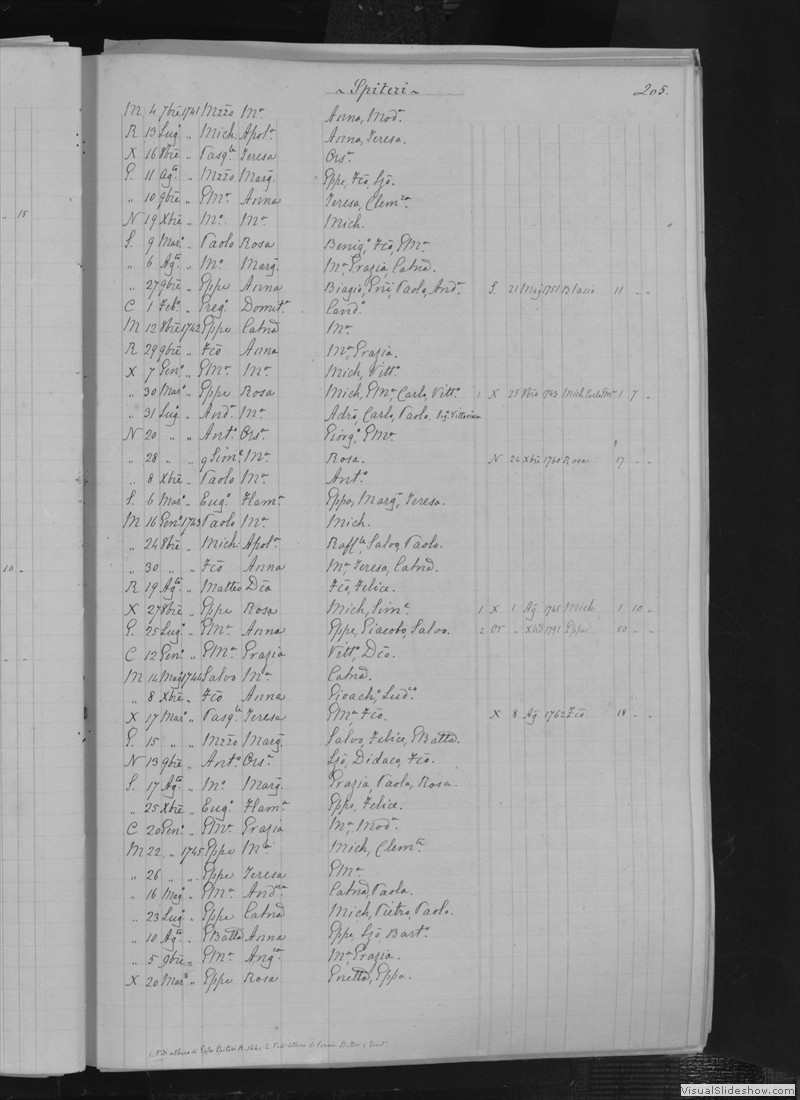 ~ Spiteri ~ 205.
M 4 7bre 1741 Mzzo Ma Anna, Moda
R 13 Lugo „ Mich Apola Anna, Teresa.
X 16 8bre „ Pasqle Teresa Orsa
G. 11 Agto „ Mzzo Marg. Gppe, Fco, Sjo.
„ 10 9bre „ GMa Anna Teresa, Clemza
N 19 Xbre „ Mo Ma Mich.
S. 9 Maro „ Paolo Rosa Benigo, Fco, GMa
„ 6 Agto „ Mo Marg. Ma, Grazia, Catna.
„ 27 9bre „ Gppe Anna Biagio, Gne, Paolo, Anda S. 21 Mag 1751 Blasio 11 „ „
C 1 Febo „ Grego Domita Cando
M 12 8bre 1742 Gppe Catna Ma
R 29 9bre „ Fco Anna Ma, Grazia.
X 7 Geno „ GMa Ma Mich, Vitto
„ 30 Maro „ Gppe Rosa Mich, GMa, Carlo, Vitto. 1 X 25 8bre 1743 Mich Carlo 1 7 „
„ 31 Lugo „ Anda Ma Adro, Carlo, Paolo. Vittorina
N 20 „ „ Anto Orsa Giorgo, GMa
„ 28 „ „ q Simo Ma Rosa. N 24 Xbre 1760 Rosa 17 „ „
„ 8 Xbre „ Paolo Ma Anto
S. 6 Maro „ Eugo Flama Gppa, Marg, Teresa.
M 16 Geno 1743 Paolo Ma Mich.
„ 24 8bre „ Mich. Apola Raffle, Salvo, Paolo.
„ 30 „ „ Fco Anna Ma, Teresa, Catna.
R 19 Agto „ Matteo Dca Fco, Felice.
X 27 8bre „ Gppe Rosa Mich, Sime 1 X 1 Ag 1765 Mich 1 10 „
G. 25 Lugo „ GMa Anna Gppe, Giacobo, Salvo. 2 Or „ Xbre 1791 Gppe 50 „ „
C 12 Geno „ GMa Grazia Vitto, Dco.
M 14 Mag 1744 Salvo Ma Catna.
„ 8 Xbre „ Fco Anna Gioacho, Ludco
X 17 Maro „ Pasqle Teresa GMa, Fco. X 8 Ag 1762 Fco 18 „ „
G. 15 „ „ Mzzo Marg. Salvo, Felice, GBatta.
N 13 9bre „ Anto Orsa Sjo, Didaco, Fco.
S. 17 Agto „ Mo Marg. Grazia, Paola, Rosa.
„ 25 Xbre „ Eugo Flama Gppe, Felice.
C 20 Geno „ GMa Grazia Ma, Moda
M 22 „ 1745 Gppe Ma Mich, Clemte
„ 26 „ „ Gppe Teresa GMa
„ 16 Mago „ GMa Andca Catna, Paola.
„ 23 Lugo „ Gppe Catna Mich, Pietro, Paolo.
„ 10 Agto „ GBatta Anna Gppe, Sjo, Barto
„ 5 9bre „ GMa Angca Ma, Grazia.
X 20 Maro „ Gppe Rosa Gnetta, Gppa.
1. Vedi albero di Gppe Spiteri 2. Vedi albero di
15
10
VisualSlideshow.com